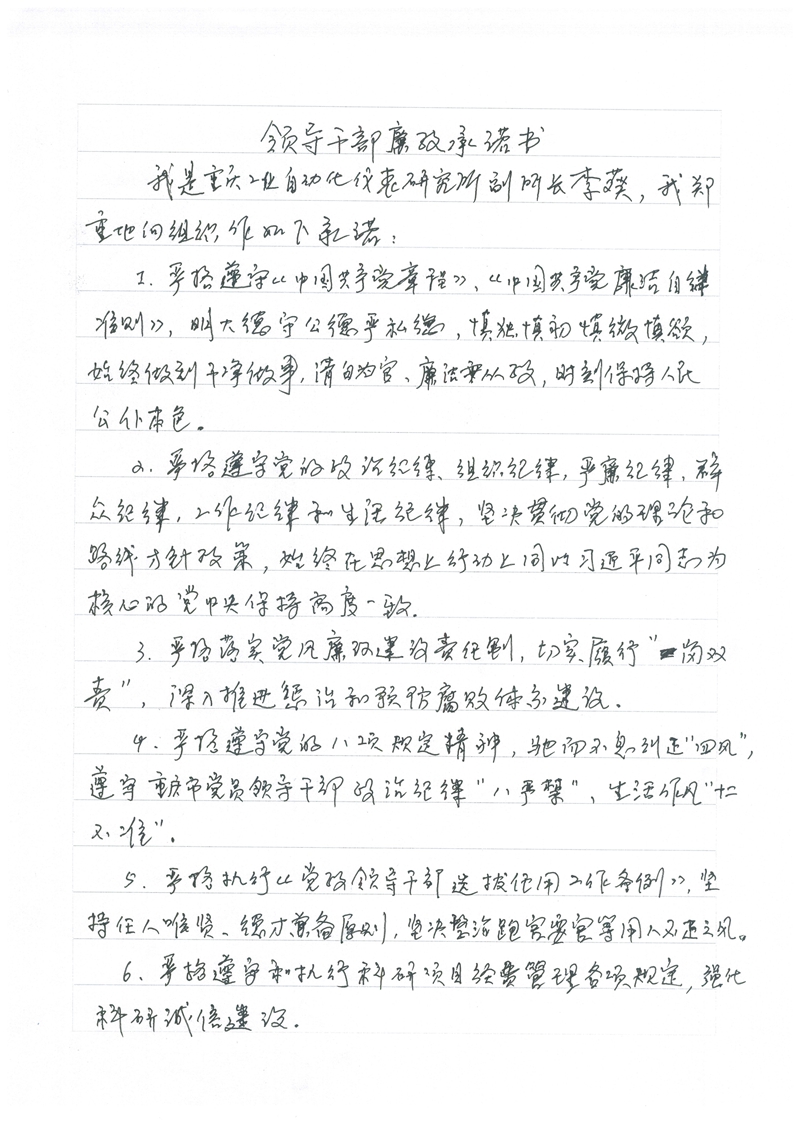 领导干部廉政承诺书
我是重庆工业自动化仪表研究所副所长李葵，我郑
重地向组织作如下承诺：
1. 严格遵守《中国共产党章程》、《中国共产党廉洁自律
准则》，明大德守公德严私德，慎独慎初慎微慎欲，
始终做到干净做事，清白为官、廉洁从政，时刻保持人民
公仆本色。
2. 严格遵守党的政治纪律、组织纪律，严廉纪律、群
众纪律，工作纪律和生活纪律，坚决贯彻党的理论和
路线方针政策，始终在思想上行动上同以习近平同志为
核心的党中央保持高度一致.
3. 严格落实党风廉政建设责任制，切实履行“一岗双
责”，深入推进惩治和预防腐败体系建设.
4. 严格遵守党的八项规定精神，驰而不息纠正“四风”，
遵守重庆市党员领导干部政治纪律“八严禁”、生活作风“十二
不准”.
5. 严格执行《党政领导干部选拔任用工作条例》，坚
持任人唯贤、德才兼备原则，坚决整治跑官要官等用人不正之风。
6. 严格遵守和执行科研项目经费管理各项规定，强化
科研诚信建设.